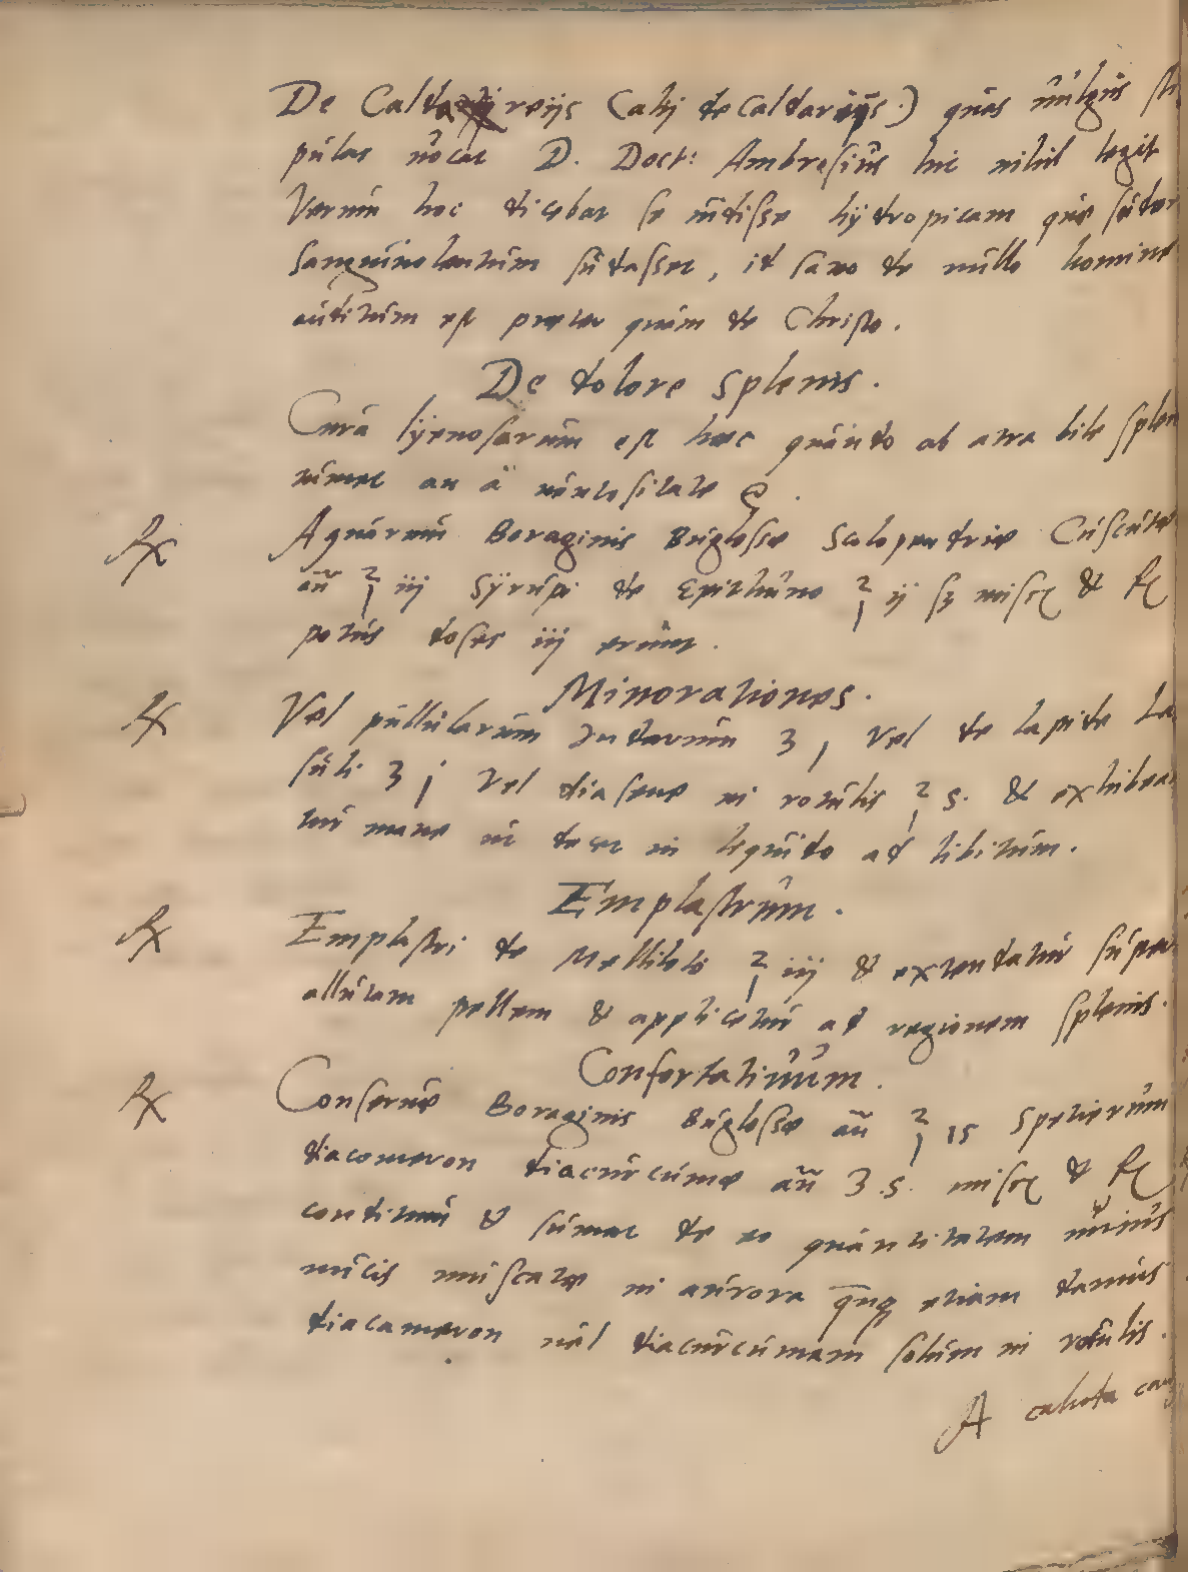 De Caldareijs (alij de Caldarijs.) quas vulgus
pulas vocat D. Doct: Ambrosius hic nihil legit
Verum hoc dicebat se vidisse hÿdropicam quæ
sanguinolentum sudasset, id sane de nullo homine
auditum est præter quam de Christo.
De dolore Splenis.
Cura lÿenosarum est hæc quando ab atra bile
tumet an à ventositate
℞ Aquarum Boraginis Buglossæ Scolopendriæ Cuscutæ
añ ℥ iij Sÿrupi de Epithimo ℥ ij ß misce & fc
potus doses iij erunt.
Minorationes.
℞ Vel pillularum Indarum ʒ j Vel de lapide La
suli ʒ j Vel diasene in rotulis ℥ s. & exhibea
tur mane ut decet in liquido ad libitum.
Emplastrum.
℞ Emplastri de Melliloto ℥ iij & extendatur super
allutam pellem & applicetur ad regionem splenis.
Confortativum.
℞ Conservæ Boraginis Buglossæ añ ℥ js Spetierum
diacameron diacurcumæ añ ʒ.s. misce & fc
conditum & sumat de eo quantitatem unius
nucis muscatæ in aurora etiam damus
diacameron vel diacurcumam solum in rotulis.
A calida